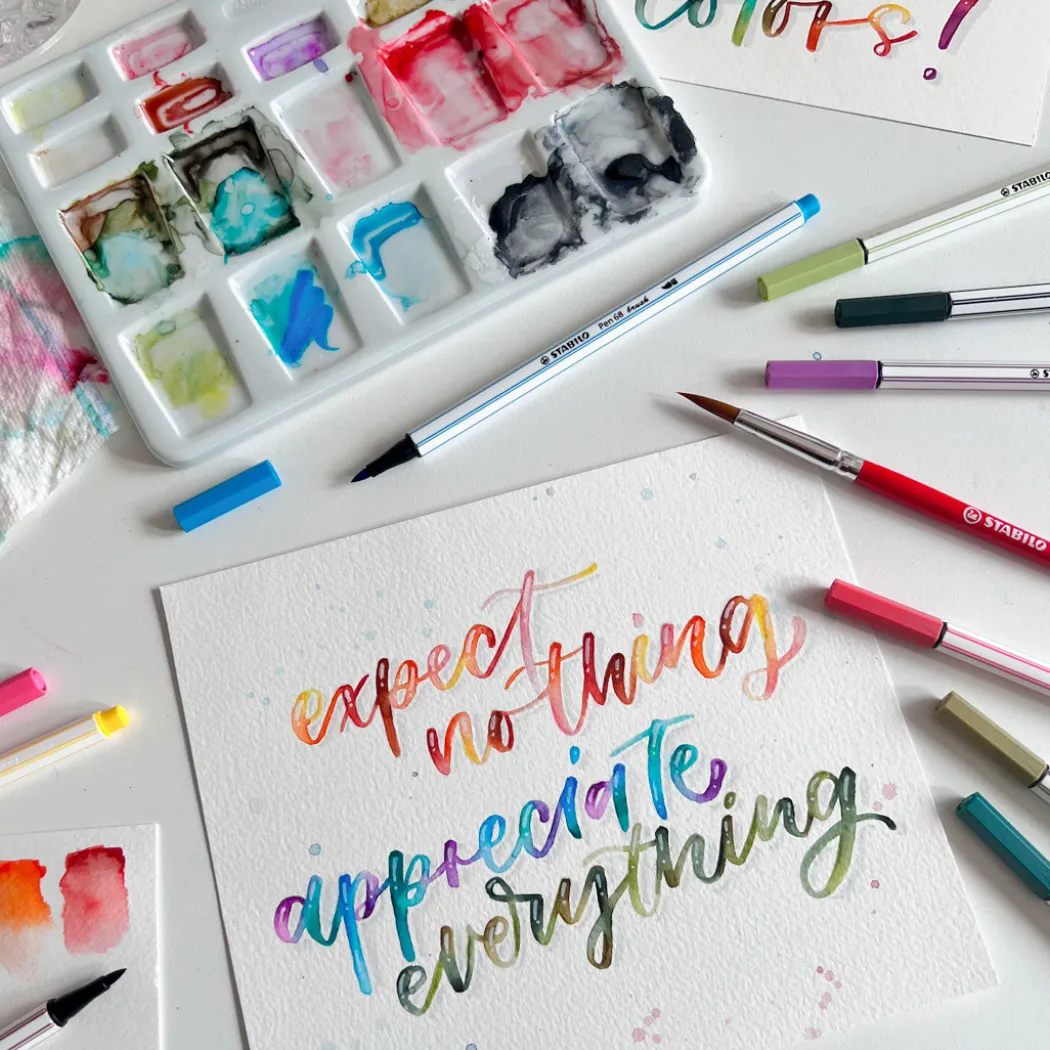 colors!
STABILO
STABILO Pen 68 brush
STABILO
expect
nothing
appreciate
everything